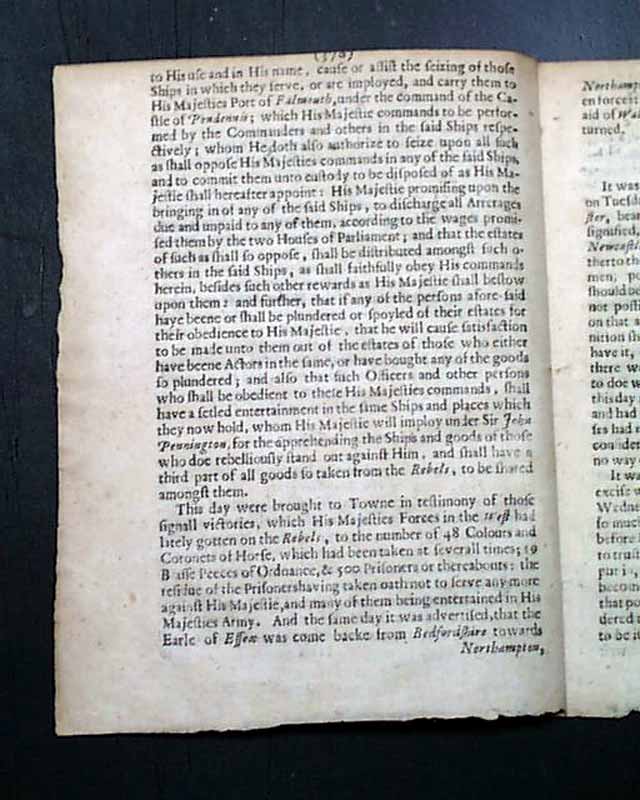 to His use and in His name, cause or assist the seizing of those
Ships in which they serve, or are imployed, and carry them to
His Majesties Port of Falmouth, under the command of the Ca-
stle of Pendennis; which His Majestie commands to be perfor-
med by the Commanders and others in the said Ships respe-
ctively; whom He doth also authorize to seize upon all such
as shall oppose His Majesties commands in any of the said Ships,
and to commit them unto custody to be disposed of as His Ma-
jestie shall hereafter appoint: His Majestie promising upon the
bringing in of any of the said Ships, to discharge all Arrerages
due and unpaid to any of them, according to the wages promi-
sed them by the two Houses of Parliament; and that the estates
of such as shall so oppose, shall be distributed amongst such o-
thers in the said Ships, as shall faithfully obey His commands
herein, besides such other rewards as His Majestie shall bestow
upon them: and further, that if any of the persons afore-said
haye beene or shall be plundered or spoyled of their estates for
their obedience to His Majestie, that he will cause satisfaction
to be made unto them out of the estates of those who either
have beene Actors in the same, or have bought any of the goods
so plundered; and also that such Officers and other persons
who shall be obedient to these His Majesties commands, shall
have a setled entertainment in the same Ships and places which
they now hold, whom His Majestie will imploy under Sir John
Pennington, for the apprehending the Ships and goods of those
who doe rebelliously stand out against Him, and shall have a
third part of all goods so taken from the Rebels, to be shared
amongst them.
This day were brought to Towne in testimony of those
signall victories, which His Majesties Forces in the West had
lately gotten on the Rebels, to the number of 48 Colours and
Coronets of Horse, which had been taken at severall times; 19
Brasse Peeces of Ordnance, & 500 Prisoners or thereabouts: the
residue of the Prisoners having taken oath not to serve any more
against His Majestie, and many of them being entertained in His
Majesties Army. And the same day it was advertised, that the
Earle of Essex was come backe from Bedfordshire towards
Northampton,
Northampt
en forces
aid of Wal
turned.
It was
on Tuesda
ster, besi
signified,
Newcastle
therto the
men; po
should be
not posti
on that a
nition sh
have it,
there w
to doe w
this day
and had
ses had
consider
no way
It wa
excise
Wed
so muc
before
to truth
put i
becom
that po
dered
to be i